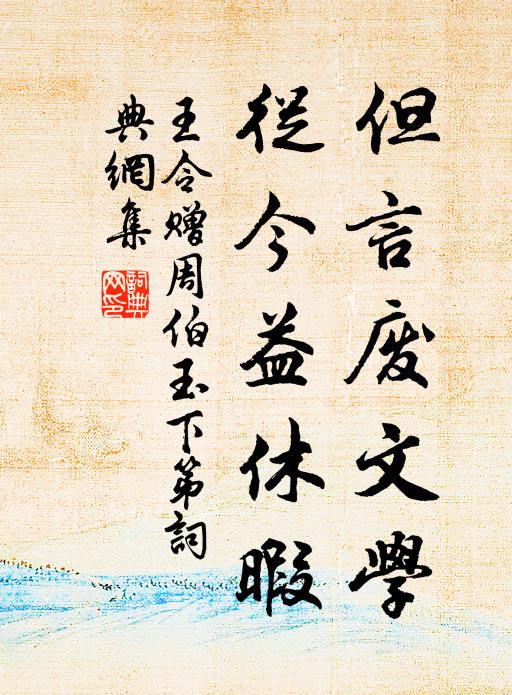 但言废文學
從今益休暇
王令赠周伯玉下第詞
典網集
詞典網印